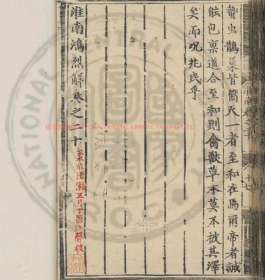 蟄虫鵲巢皆向天一者至和在焉爾帝者誠
能包稟道合至和則禽獸草木莫不被其澤
矣而況兆民乎
淮南鴻烈解卷之二十
NATIONAL